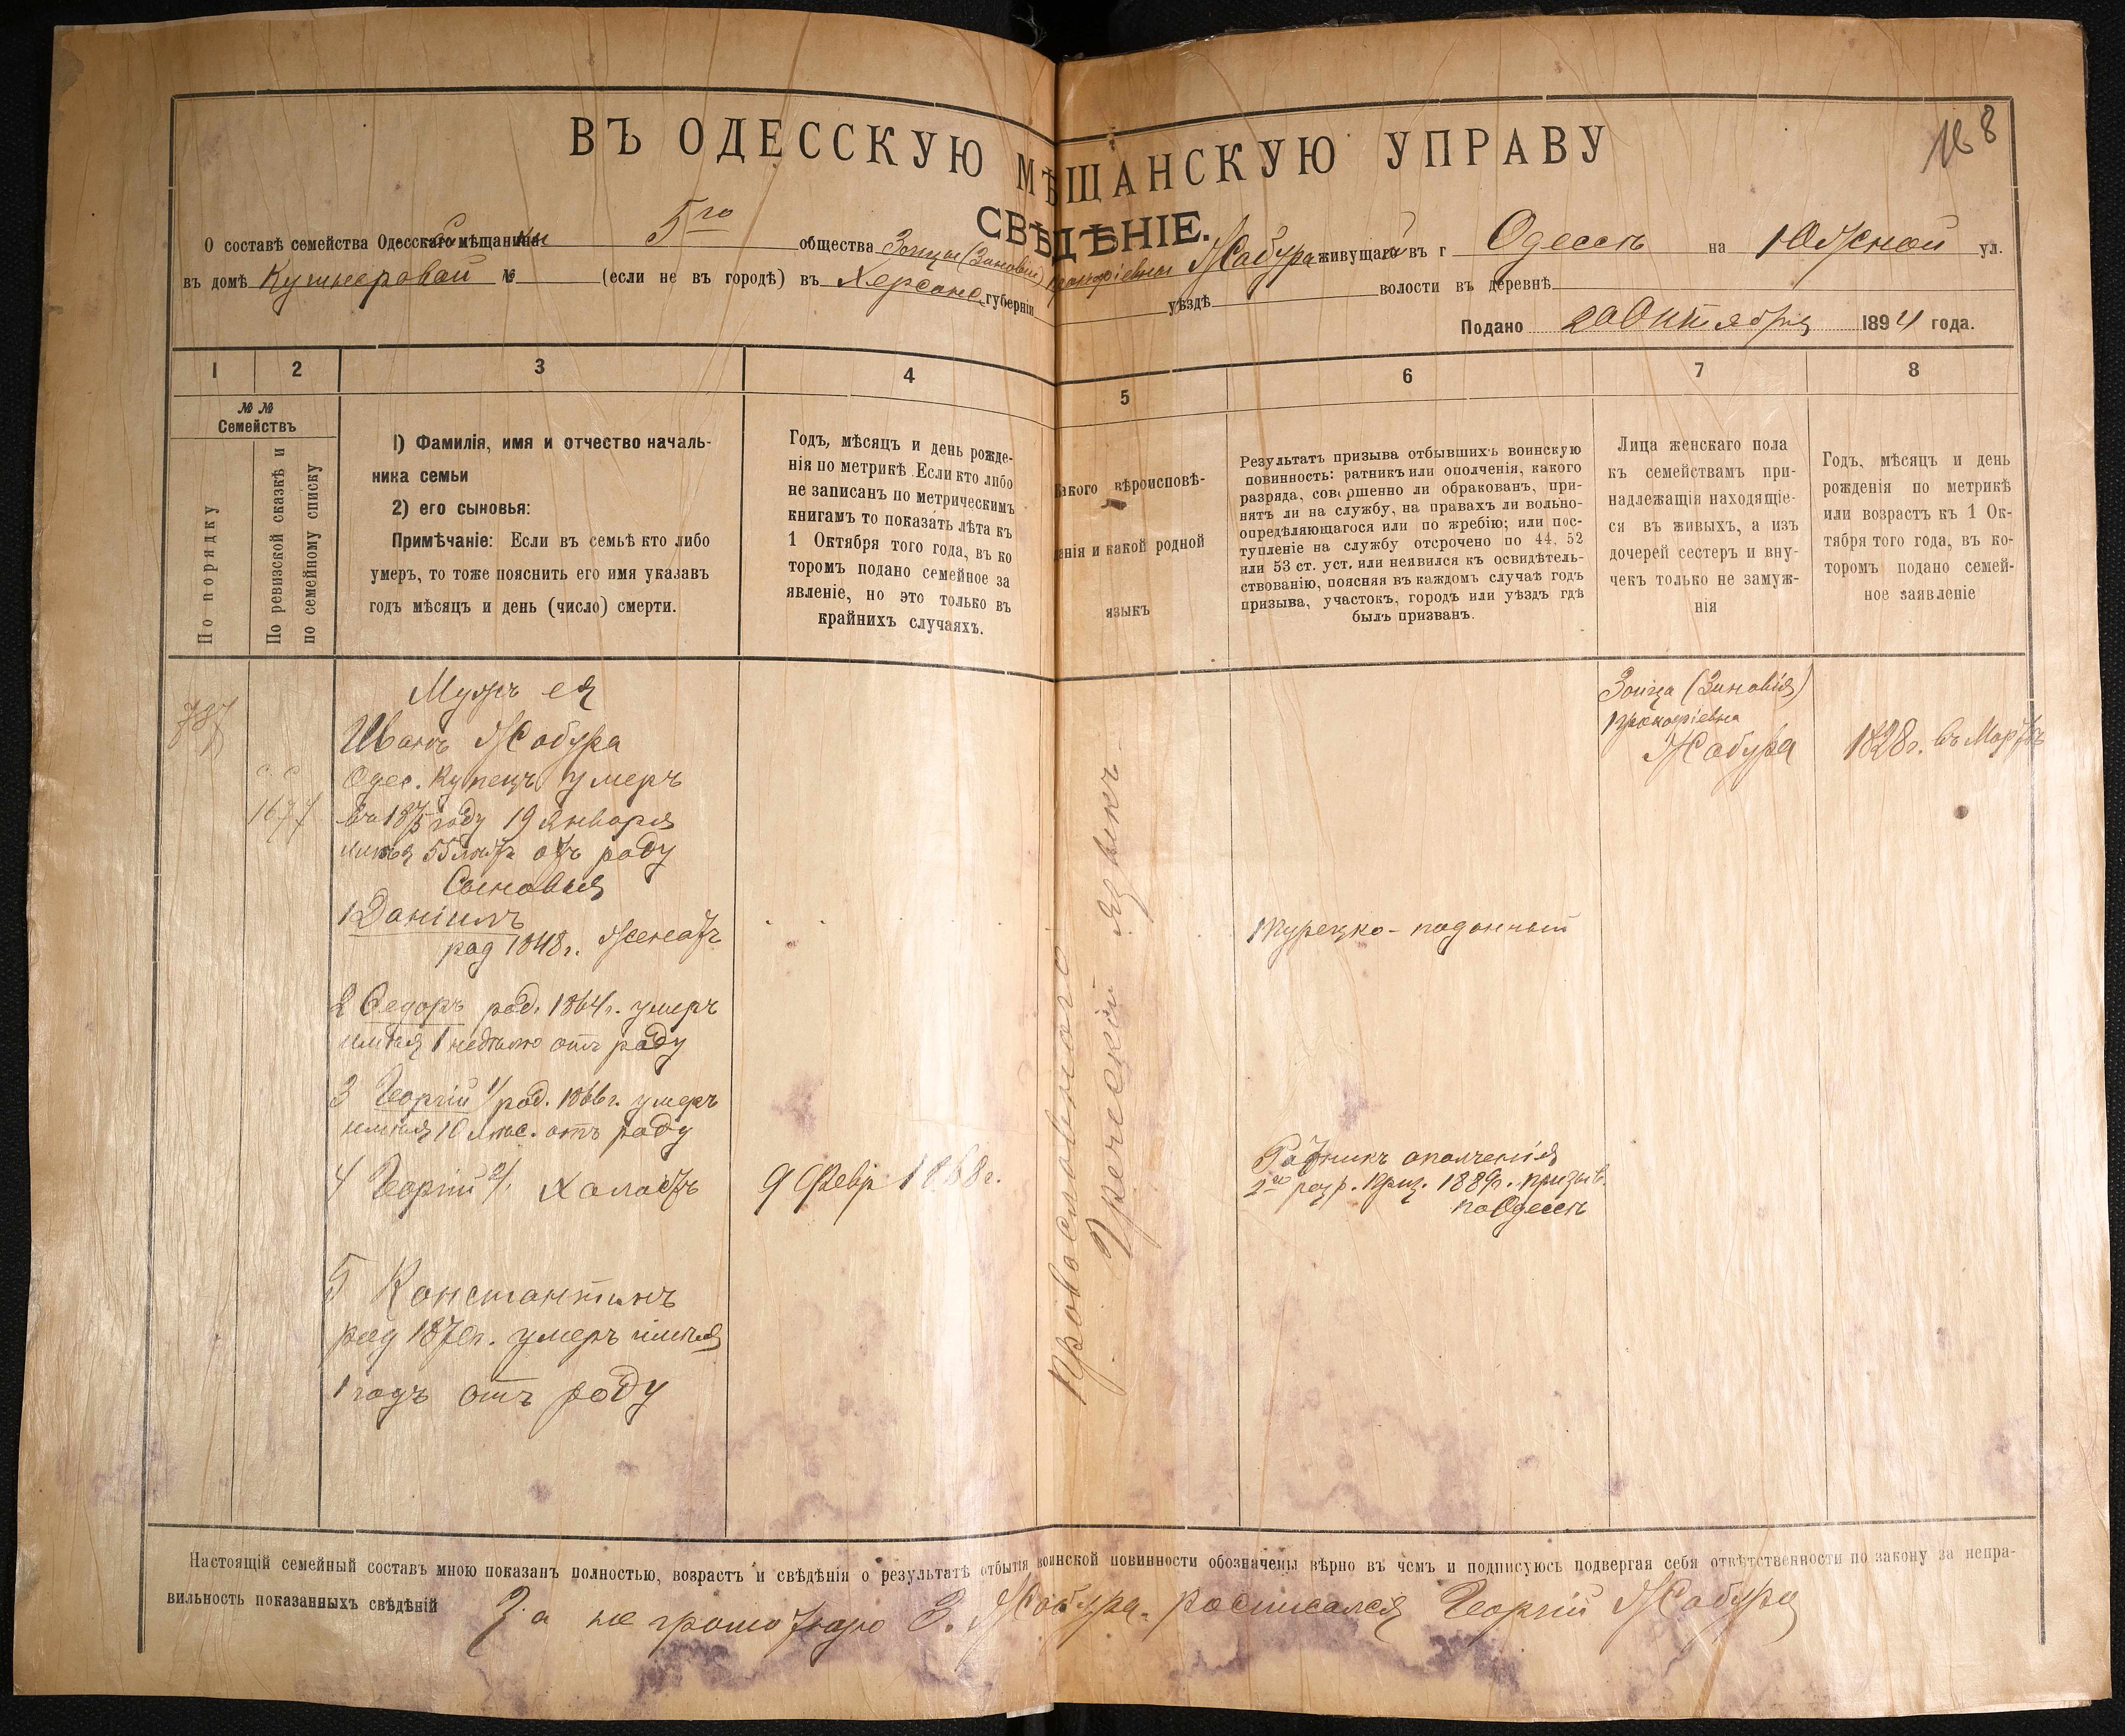 168
ВЪ ОДЕССКУЮ МѢЩАНСКУЮ УПРАВУ
СВѢДѢНІЕ.
О составѣ семейства Одесской мѣщанки 5го общества Зоицы (Зиновіи) Прокофіевны Жабура живущей въ г Одессѣ на Южной ул.
въ домѣ Кушнеровой № (если не въ городѣ) въ Херсонс. губерніи уѣздѣ волости въ деревнѣ
Подано 20 Октября 1894 года.
1 2 3 4 5 6 7 8
№ №
Семействъ
По порядку
По ревизской сказкѣ и
по семейному списку
1) Фамилія, имя и отчество началь-
ника семьи
2) его сыновья:
Примѣчаніе: Если въ семьѣ кто либо
умеръ, то тоже пояснить его имя указавъ
годъ мѣсяцъ и день (число) смерти.
Годъ, мѣсяцъ и день рожде-
нія по метрикѣ Если кто либо
не записанъ по метрическимъ
книгамъ то показать лѣта къ
1 Октября того года, въ ко
торомъ подано семейное за
явленіе, но это только въ
крайнихъ случаяхъ.
Какого вѣроисповѣ-
данія и какой родной
языкъ
Результатъ призыва отбывшихъ воинскую
повинность: ратникъ или ополченія, какого
разряда, совершенно ли обракованъ, при-
нятъ ли на службу, на правахъ ли вольно-
опредѣляющагося или по жребію; или пос-
тупленіе на службу отсрочено по 44, 52
или 53 ст. уст. или неявился къ освидѣтель-
ствованію, поясняя въ каждомъ случаѣ годъ
призыва, участокъ, городъ или уѣздъ гдѣ
былъ призванъ.
Лица женскаго пола
къ семействамъ при-
надлежащія находящіе-
ся въ живыхъ, а изъ
дочерей сестеръ и вну-
чекъ только не замуж-
нія
Годъ, мѣсяцъ и день
рожденія по метрикѣ
или возрастъ къ 1 Ок-
тября того года, въ ко-
торомъ подано семей-
ное заявленіе
787
с. с
1677
Мужъ ея
Иванъ Жабура
Одес. Купецъ умеръ
въ 1875 году 19 Января
имѣя 55 лѣтъ отъ роду
Сыновья
1 Даніилъ
род 1848 г. Женатъ
2 Федоръ род. 1864 г. умеръ
имѣя 1 недѣлю отъ роду
3 Георгій 1/ род. 1866 г. умеръ
имѣя 10 мѣс. отъ роду
4 Георгій 2/. Холостъ
5 Константинъ
род 1870 г. умеръ имѣя
1 годъ отъ роду
9 Февр 1868 г.
Православнаго
Греческій языкъ
Турецко-поданный
Ратникъ ополченія
2го разр. Приз. 1889 г. призыв.
по Одессѣ
Зоица (Зиновія)
Прокофіевна
Жабура
1828 г. въ Мартѣ
Настоящій семейный составъ мною показанъ полностью, возрастъ и свѣдѣнія о результатѣ отбытія воинской повинности обозначены вѣрно въ чемъ и подписуюсь подвергая себя отвѣтственности по закону за непра-
вильность показанныхъ свѣдѣній За не грамотную З. Жабура росписался Георгій Жабура